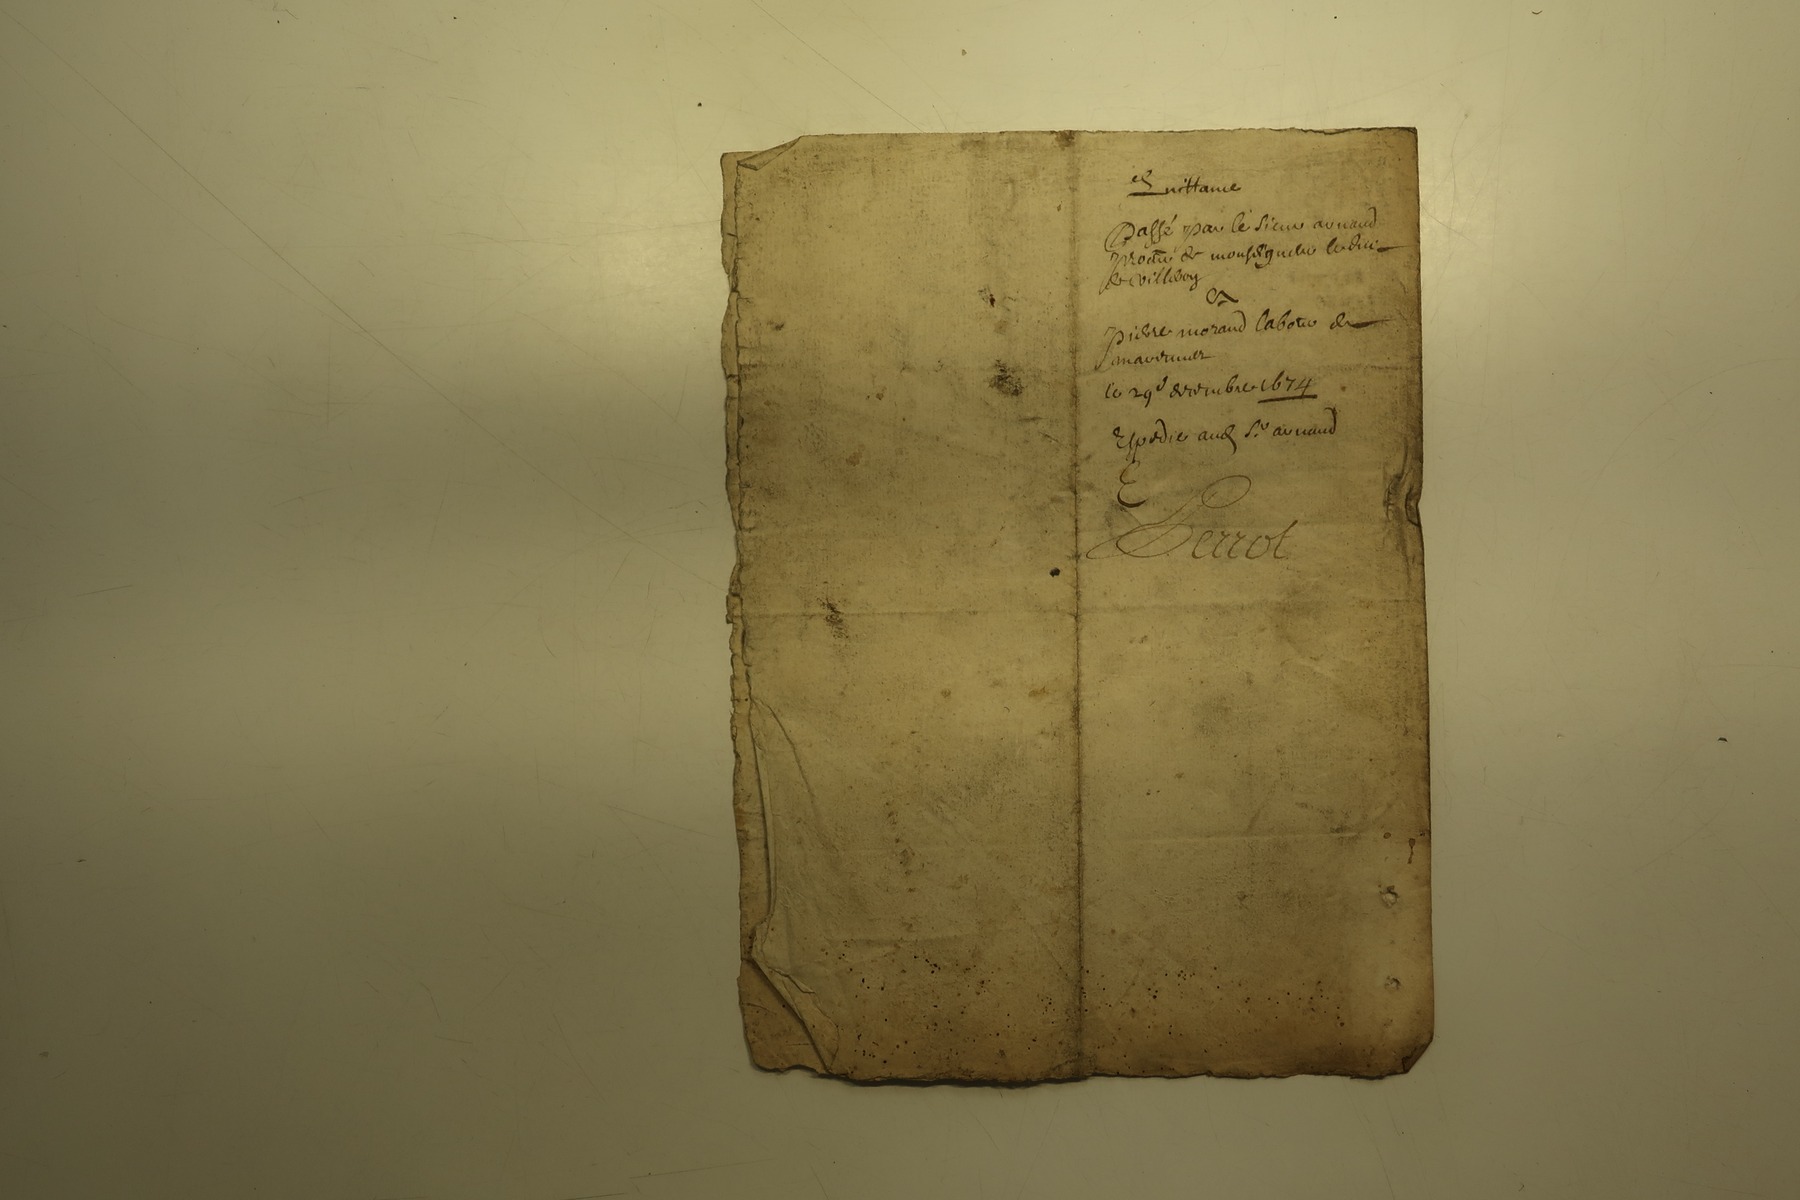 Quittance
Passé par le sieur arnaud
procu de monseigneur le duc
de villeroy
A
pierre morand labour de
le 29e decembre 1674
Expedie aud Sr arnaud
E
Perrot